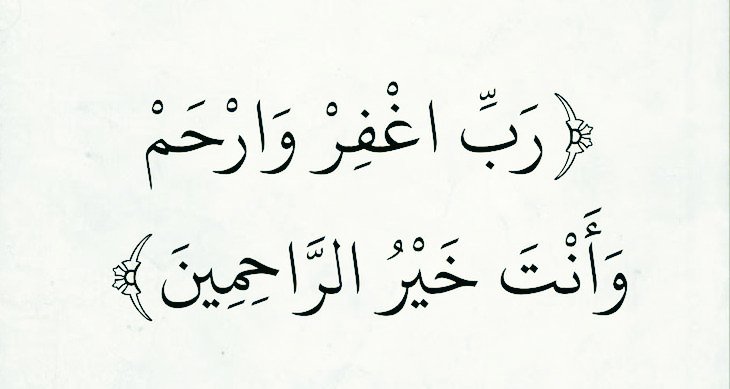 ﴿ رَبِّ اغْفِرْ وَارْحَمْ
وَأَنْتَ خَيْرُ الرَّاحِمِينَ ﴾